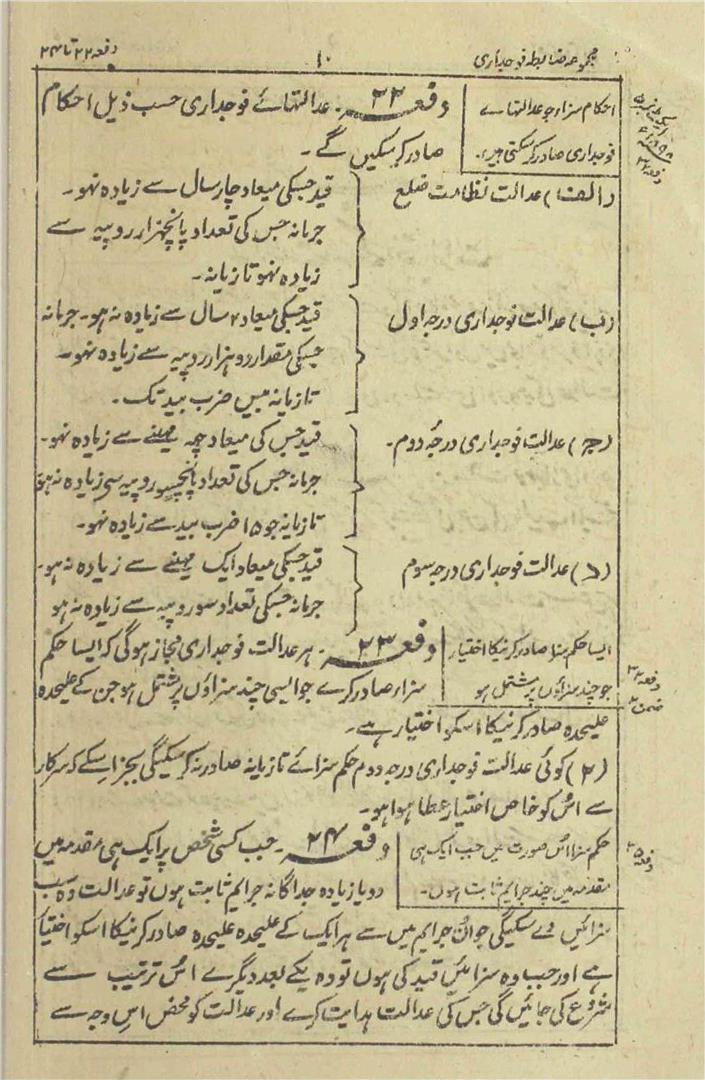 دفعہ ۲۲ تا ۲۴
۱۰
مجموعہ ضابطہ فوجداری
احکام سزاء جو عدالتہاے
فوجداری صادر کر سکتی ہیں۔
دفعہ ۲۲۔ عدالتہائے فوجداری حسب ذیل احکام
صادر کر سکیں گے۔
(الف) عدالت نظامت ضلع
قید جسکی میعاد چار سال سے زیادہ نہو۔
جرمانہ جس کی تعداد پانچہزار روپیہ سے
زیادہ نہو تازیانہ۔
(ب) عدالت فوجداری درجہ اول
قید جسکی میعاد ۲ سال سے زیادہ نہ ہو۔ جرمانہ
جسکی مقدار دو ہزار روپیہ سے زیادہ نہو۔
تازیانہ تیس ضرب بید تک۔
(ج) عدالت فوجداری درجہ دوم۔
قید جس کی میعاد چھ مہینے سے زیادہ نہو۔
جرمانہ جس کی تعداد پانچسو روپیہ سے زیادہ نہ ہو
تازیانہ جو ۱۵ ضرب بید سے زیادہ نہو۔
(د) عدالت فوجداری درجہ سوم
قید جسکی میعاد ایک مہینے سے زیادہ نہ ہو۔
جرمانہ جسکی تعداد سو روپیہ سے زیادہ نہ ہو
ایسا حکم سزا صادر کرنیکا اختیار
جو چند سزاؤں پر مشتمل ہو
دفعہ ۲۳۔ ہر عدالت فوجداری مجاز ہوگی کہ ایسا حکم
سزاء صادر کرے جو ایسی چند سزاؤں پر مشتمل ہو جن کے علیحدہ
علیحدہ صادر کرنیکا اسکو اختیار ہے۔
(۲) کوئی عدالت فوجداری درجہ دوم حکم سزائے تازیانہ صادر نہ کر سکیگی بجز اسکے کہ سرکار
سے اُس کو خاص اختیار عطا ہوا ہو۔
حکم سزا اس صورت میں جب ایک ہی
مقدمہ میں چند جرایم ثابت ہوں۔
دفعہ ۲۴۔ جب کسی شخص پر ایک ہی مقدمہ میں
دو یا زیادہ جداگانہ جرایم ثابت ہوں تو عدالت وہ سب
سزائیں دے سکیگی جو اُن جرایم میں سے ہر ایک کے علیحدہ علیحدہ صادر کرنیکا اسکو اختیار
ہے اور جب وہ سزائیں قید کی ہوں تو وہ یکے بعد دیگرے اُس ترتیب سے
شروع کی جائیں گی جس کی عدالت ہدایت کرے اور عدالت کو محض اس وجہ سے
دفعہ ۳۲
ضمن ۲
دفعہ ۳۵